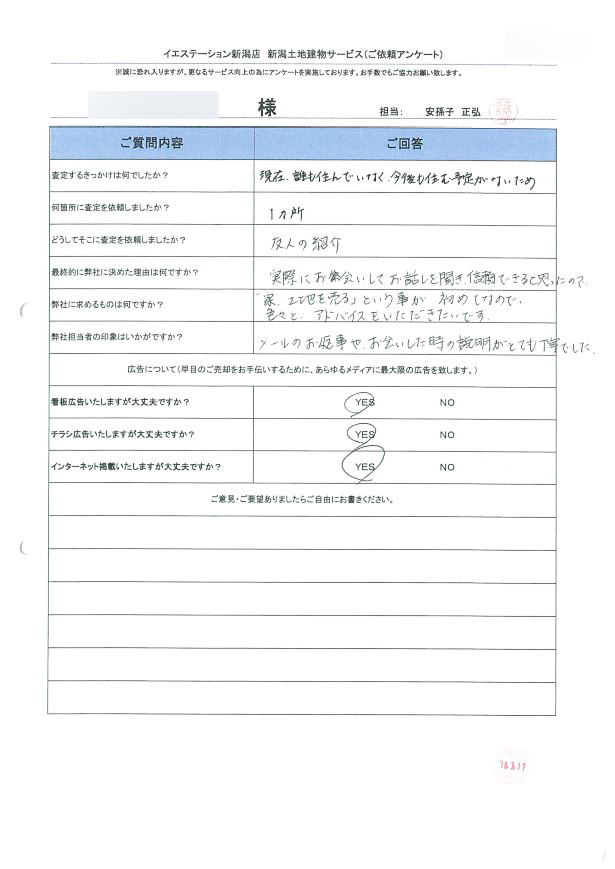 イエステーション新潟店 新潟土地建物サービス(ご依頼アンケート)
※誠に恐れ入りますが、更なるサービス向上の為にアンケートを実施しております。お手数でもご協力お願い致します。
様 担当: 安孫子 正弘
ご質問内容 ご回答
査定するきっかけは何でしたか? 現在、誰も住んでいなく、今後も住む予定がないため
何箇所に査定を依頼しましたか? 1カ所
どうしてそこに査定を依頼しましたか? 友人の紹介
最終的に弊社に決めた理由は何ですか? 実際にお会いしてお話しを聞き、信頼できると思ったので
弊社に求めるものは何ですか? 「家、土地を売る」という事が初めてなので、
色々と、アドバイスをいただきたいです。
弊社担当者の印象はいかがですか? メールのお返事や、お会いした時の説明がとても丁寧でした。
広告について(早目のご売却をお手伝いするために、あらゆるメディアに最大限の広告を致します。)
看板広告いたしますが大丈夫ですか? YES NO
チラシ広告いたしますが大丈夫ですか? YES NO
インターネット掲載いたしますが大丈夫ですか? YES NO
ご意見・ご要望ありましたらご自由にお書きください。
'18.3.17